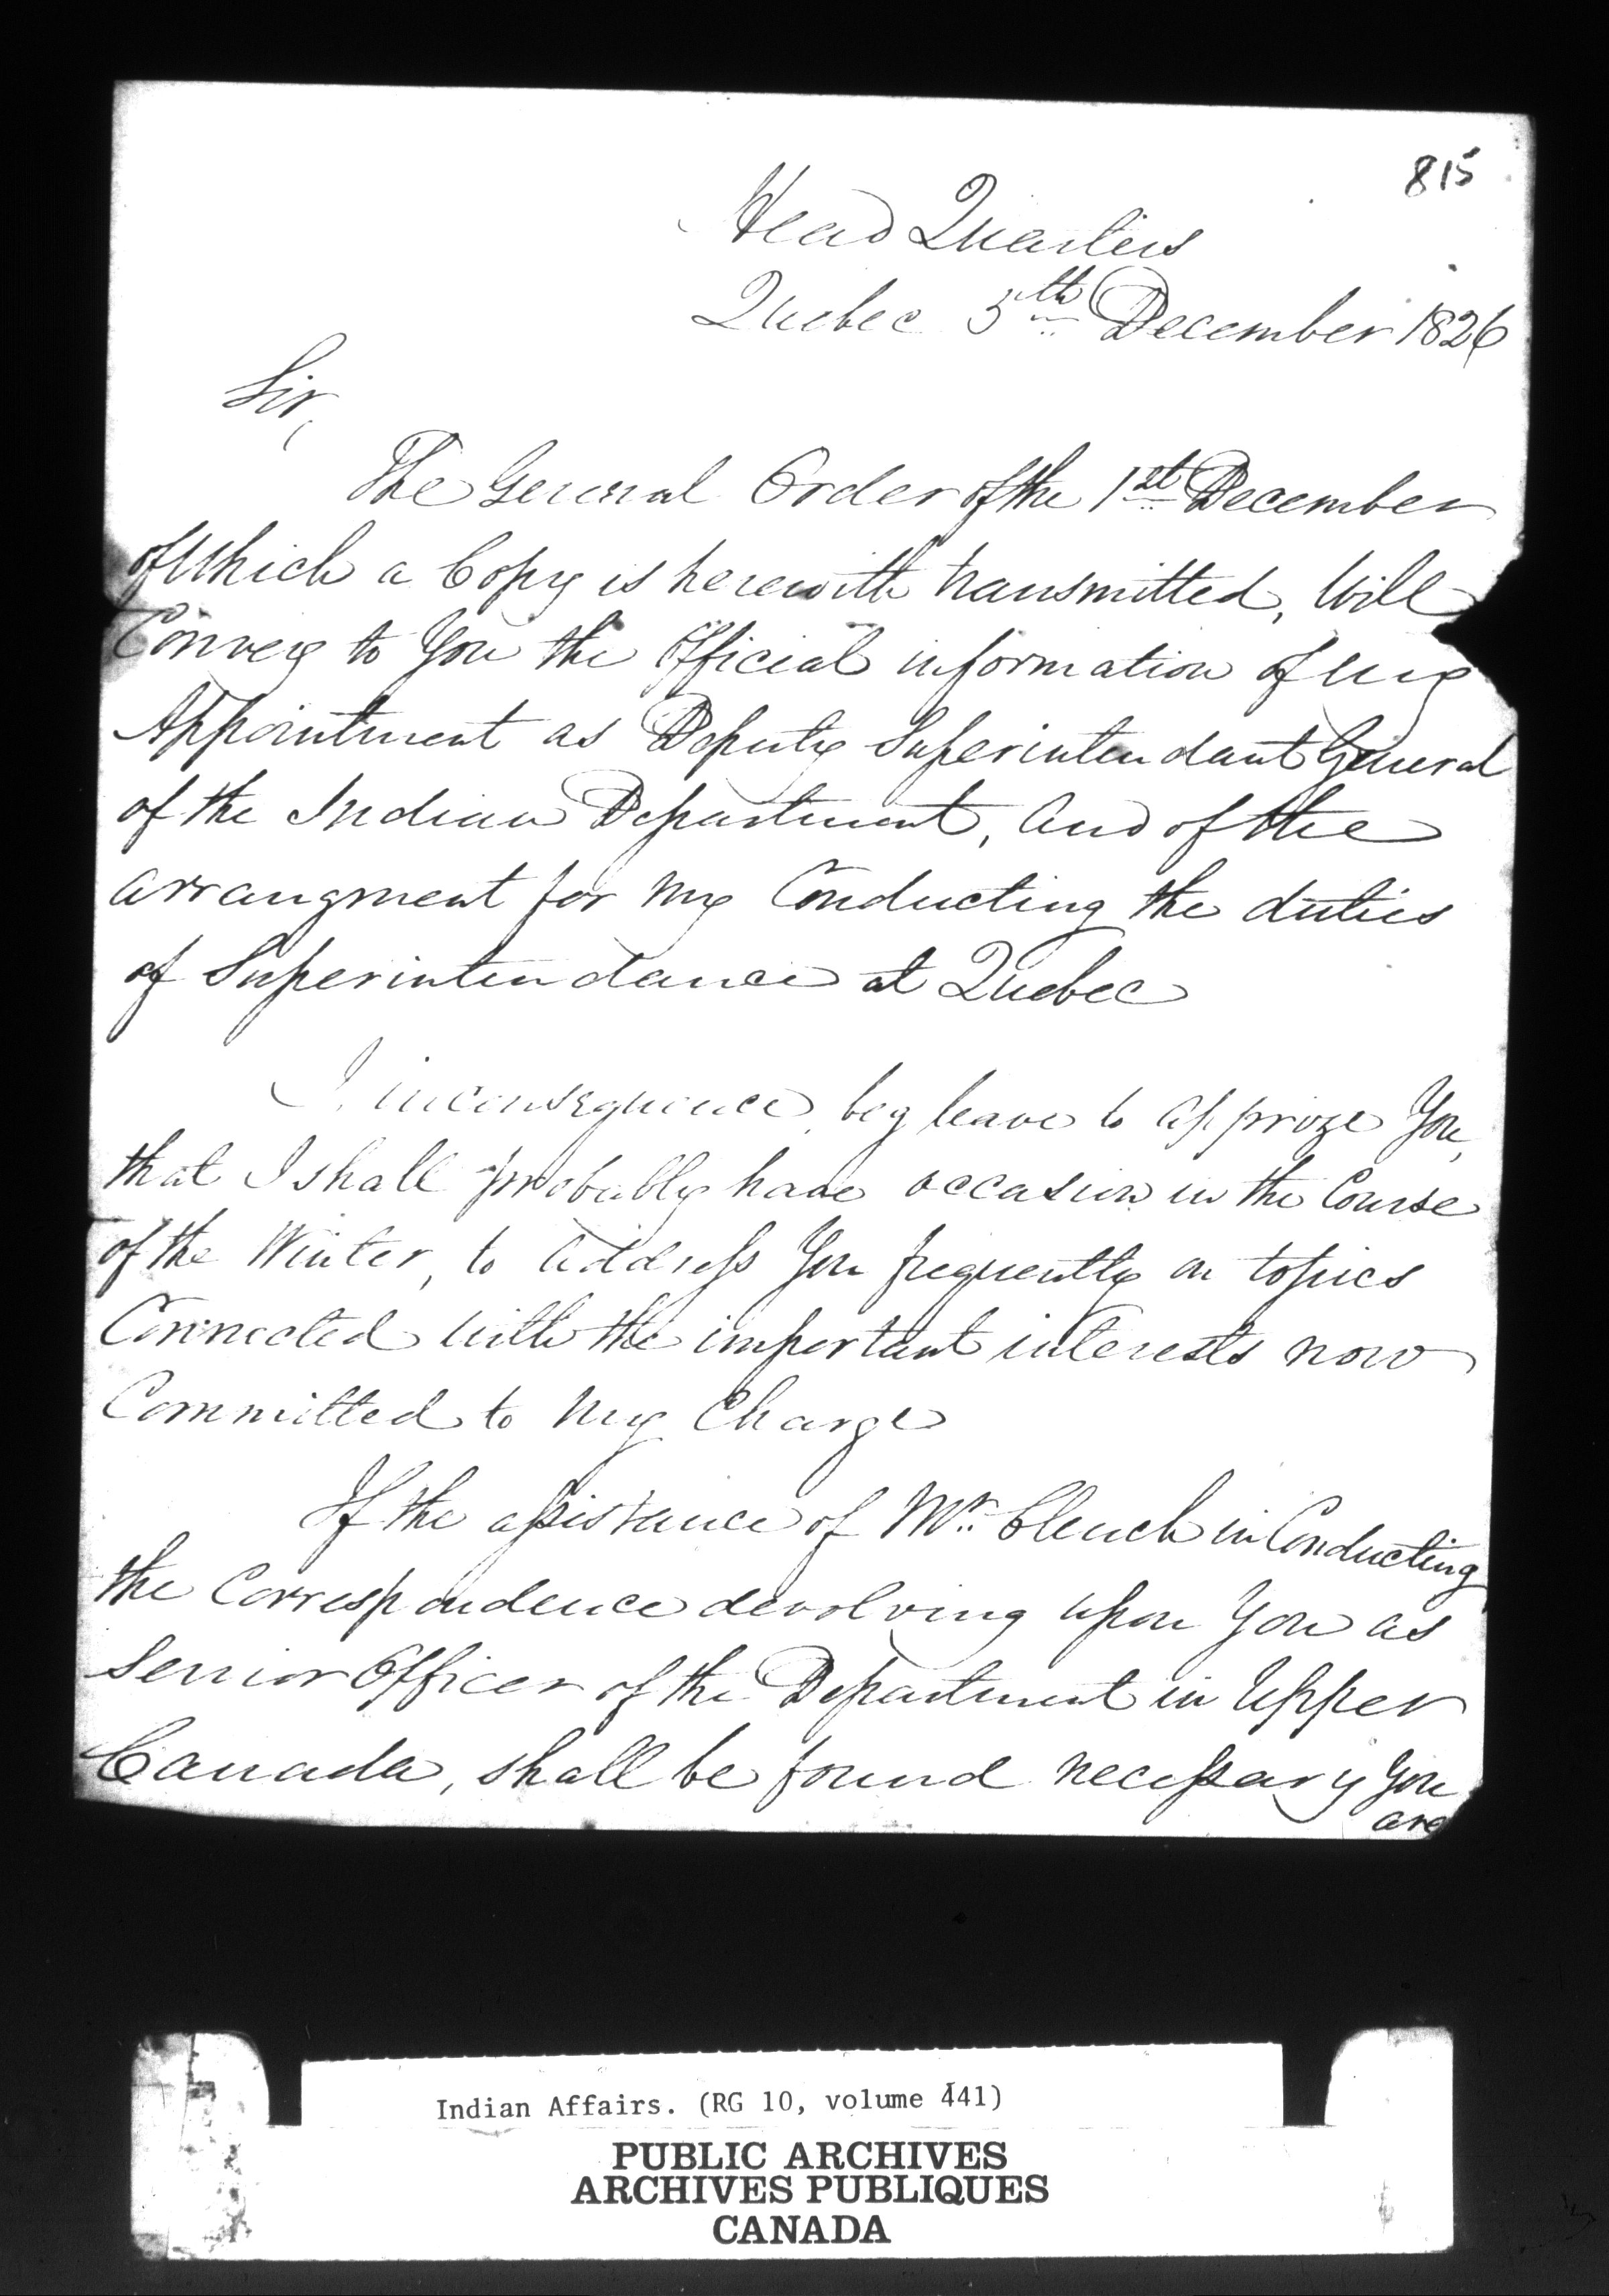 815
Head Quarters
Quebec 5th December 1826
Sir,
The General Order of the 1st December
of Which a Copy is herewith transmitted, Will
Convey to You the Official information of my
Appointment as Deputy Superintendant General
of the Indian Department, and of the
arrangment for My Conducting the duties
of Superintendance at Quebec
I inconsequence beg leave to apprize You,
that I shall probably have occasion in the Course
of the Winter, to address You frequently on topics
Connected with the important interests now
Committed to My Charge
If the assistance of Mr. Clench in Conducting
the Correspondence devolving upon You as
Senior Officer of the Department in Upper
Canada, shall be found necessary You
are
Indian Affairs. (RG 10, volume 441)
PUBLIC ARCHIVES
ARCHIVES PUBLIQUES
CANADA